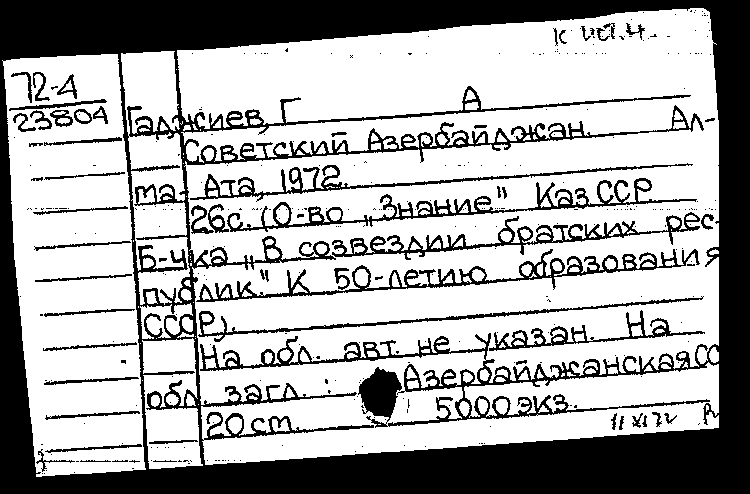 к ист.
72-4
23804
Гаджиев, Г А
Советский Азербайджан. Ал-
ма-Ата, 1972.
26с. (О-во „Знание" Каз ССР
Б-чка „В созвездии братских рес-
публик." К 50-летию образования
СССР).
На обл. авт. не указан. На
обл. загл.: Азербайджанская СС
20 cm. 5000 экз.
11 XI 72